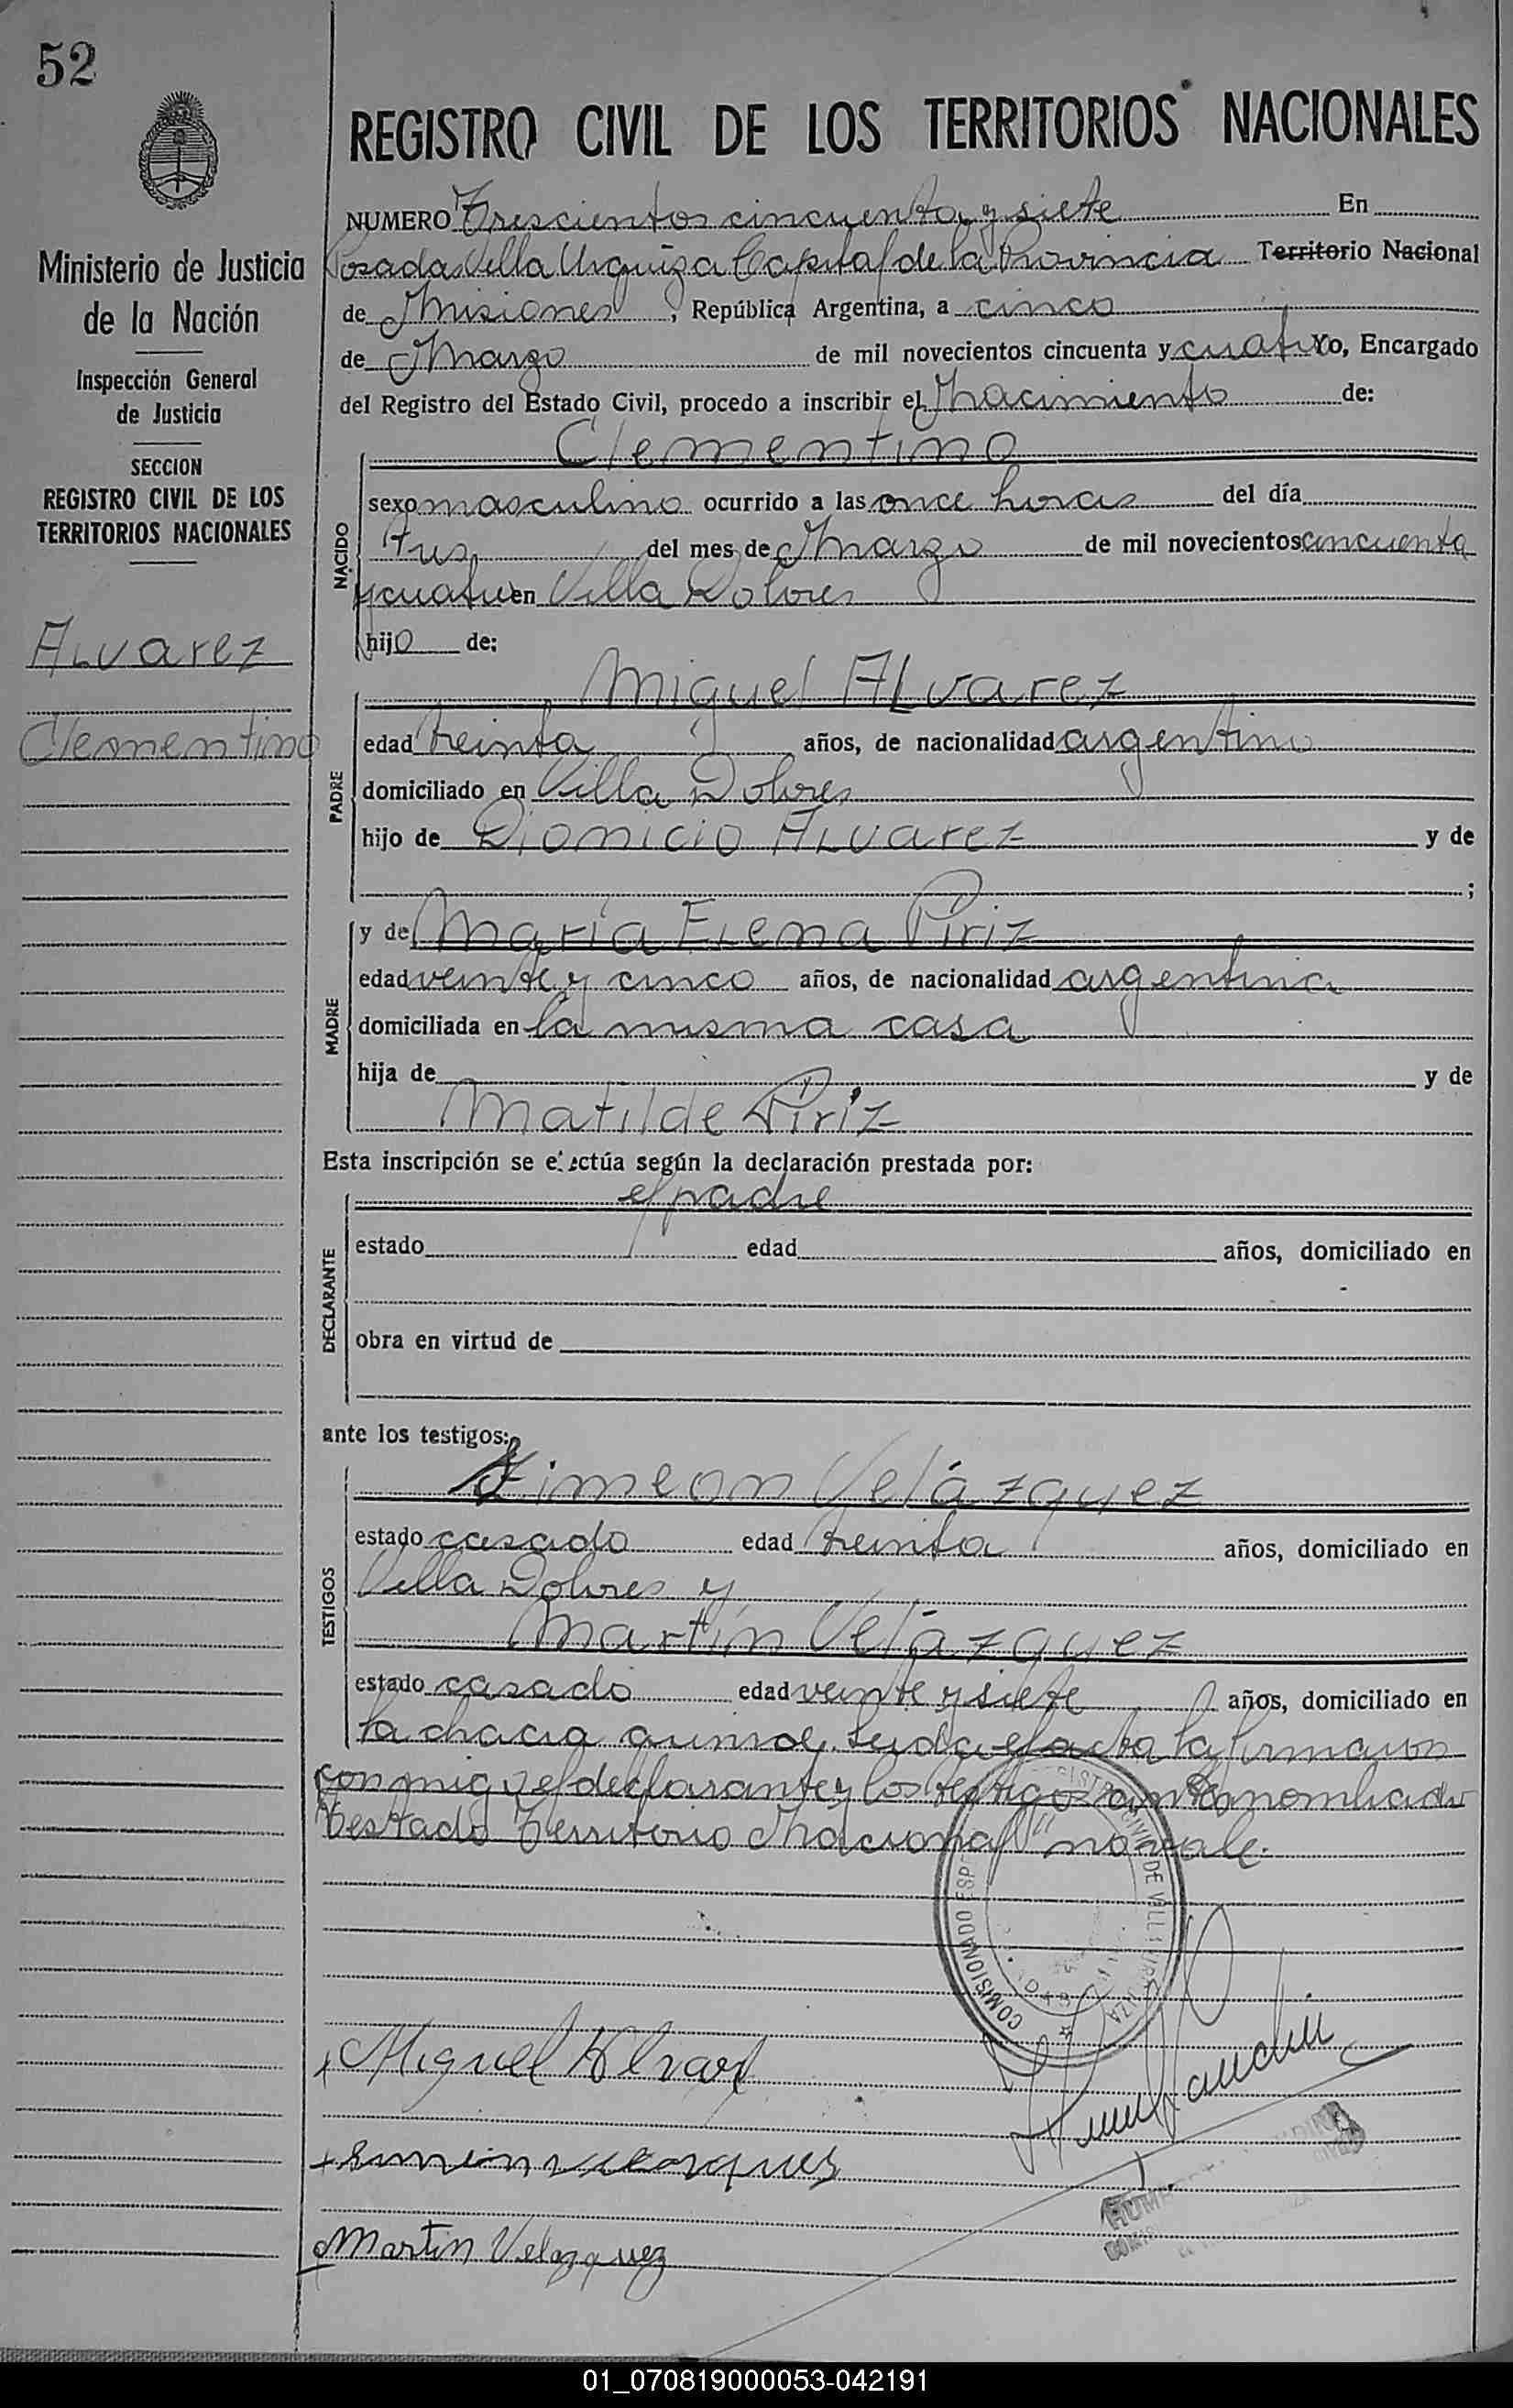 52
Ministerio de Justicia
de la Nación
Inspección General
de Justicia
SECCION
REGISTRO CIVIL DE LOS
TERRITORIOS NACIONALES
Alvarez
Clementino
REGISTRO CIVIL DE LOS TERRITORIOS NACIONALES
NUMERO Trescientos cincuenta y siete En
Posadas Villa Urquiza Capital de la Provincia Territorio Nacional
de Misiones, República Argentina, a cinco
de Marzo de mil novecientos cincuenta y cuatro Yo, Encargado
del Registro del Estado Civil, procedo a inscribir el Nacimiento de:
Clementino
NACIDO
sexo masculino ocurrido a las once horas del día
tres del mes de Marzo de mil novecientos cincuenta
y cuatro en Villa Dolores
hijo de:
Miguel Alvarez
PADRE
edad treinta años, de nacionalidad argentino
domiciliado en Villa Dolores
hijo de Dionicio Alvarez y de
;
y de María Elena Piriz
MADRE
edad veinte y cinco años, de nacionalidad argentina
domiciliada en la misma casa
hija de y de
Matilde Piriz
Esta inscripción se efectúa según la declaración prestada por:
el padre
DECLARANTE
estado edad años, domiciliado en
obra en virtud de
ante los testigos:
Simeon Velázquez
TESTIGOS
estado casado edad treinta años, domiciliado en
Villa Dolores y
Martín Velázquez
estado casado edad veinte y siete años, domiciliado en
la chacra Leida el acta la firmaron
conmigo el declarante y los testigos nombrados
Testado "Territorio Nacional" no vale.
COMISIONADO DE VILLA URQUIZA
Miguel Alvarez
Martin Velazquez
01_070819000053-042191